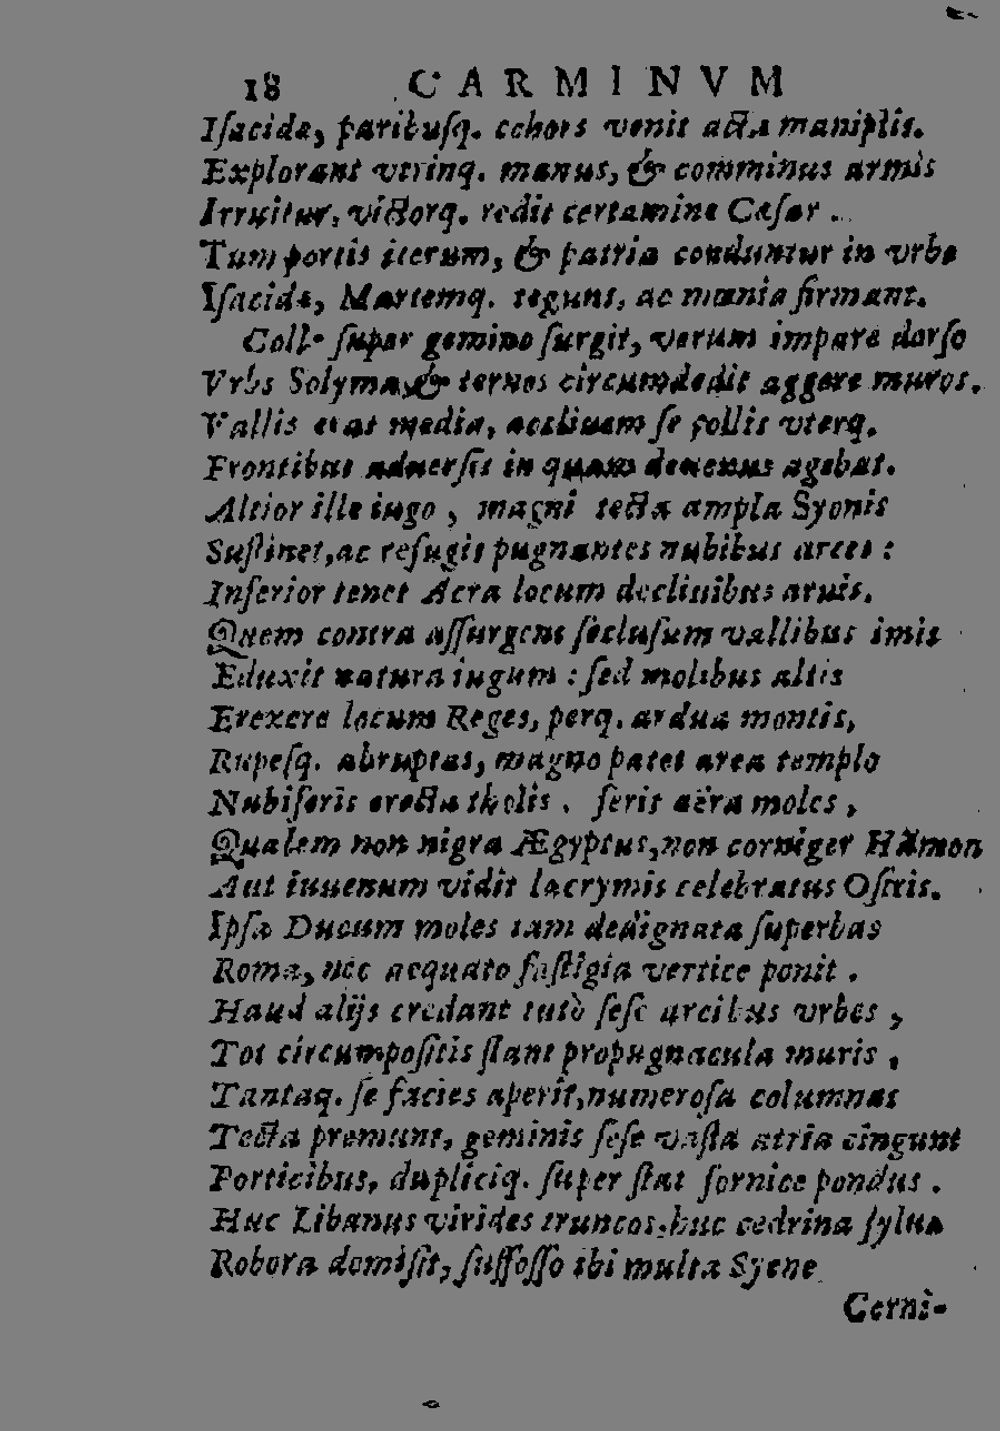 18 CARMINVM
Iſacidæ, paribuſq. cohors venit acta maniplis.
Explorant vtrinq. manus, & comminus armis
Irruitur, victorq. redit certamine Cæſar.
Tum portis iterum, & patria conduntur in vrbe
Iſacidæ, Martemq. tegunt, ac mœnia firmant.
Colle ſuper gemino ſurgit, verum impare dorſo
Vrbs Solyma, & ternos circumdedit aggere muros.
Vallis erat media, accliuem ſe collis vterq.
Frontibus aduerſis in quam deuexus agebat.
Altior ille iugo, magni tecta ampla Syonis
Suſtinet, ac refugit pugnantes nubibus arces:
Inferior tenet Acra locum decliuibus aruis.
Quem contra aſſurgens ſecluſum vallibus imis
Eduxit natura iugum: ſed molibus altis
Erexere locum Reges, perq. ardua montis,
Rupeſq. abruptas, magno patet area templo
Nubiferis erecta tholis. ferit aëra moles,
Qualem non nigra Ægyptus, non corniger Hāmon
Aut iuuenum vidit lacrymis celebratus Oſiris.
Ipſa Ducum moles iam dedignata ſuperbas
Roma, nec aequato faſtigia vertice ponit.
Haud alijs credant tutò ſeſe arcibus vrbes,
Tot circumpoſitis ſtant propugnacula muris,
Tantaq. ſe facies aperit, numeroſa columnas
Tecta premunt, geminis ſeſe vaſta atria cingunt
Porticibus, dupliciq. ſuper ſtat fornice pondus.
Huc Libanus virides truncos, huc cedrina ſylua
Robora demiſit, ſuffoſſo ibi multa Syene
Cerni-